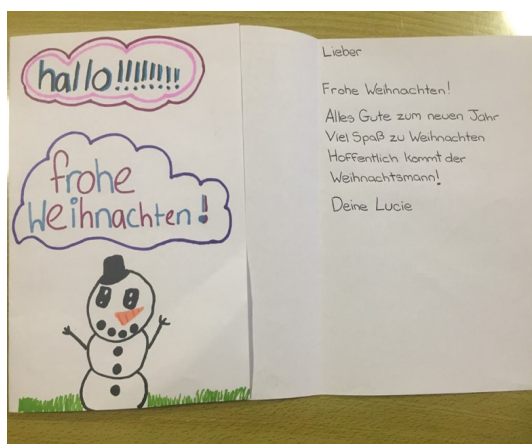 hallo!!!!!!!!
frohe
Weihnachten!
Lieber
Frohe Weihnachten!
Alles Gute zum neuen Jahr
Viel Spaß zu Weihnachten
Hoffentlich kommt der
Weihnachtsmann!
Deine Lucie